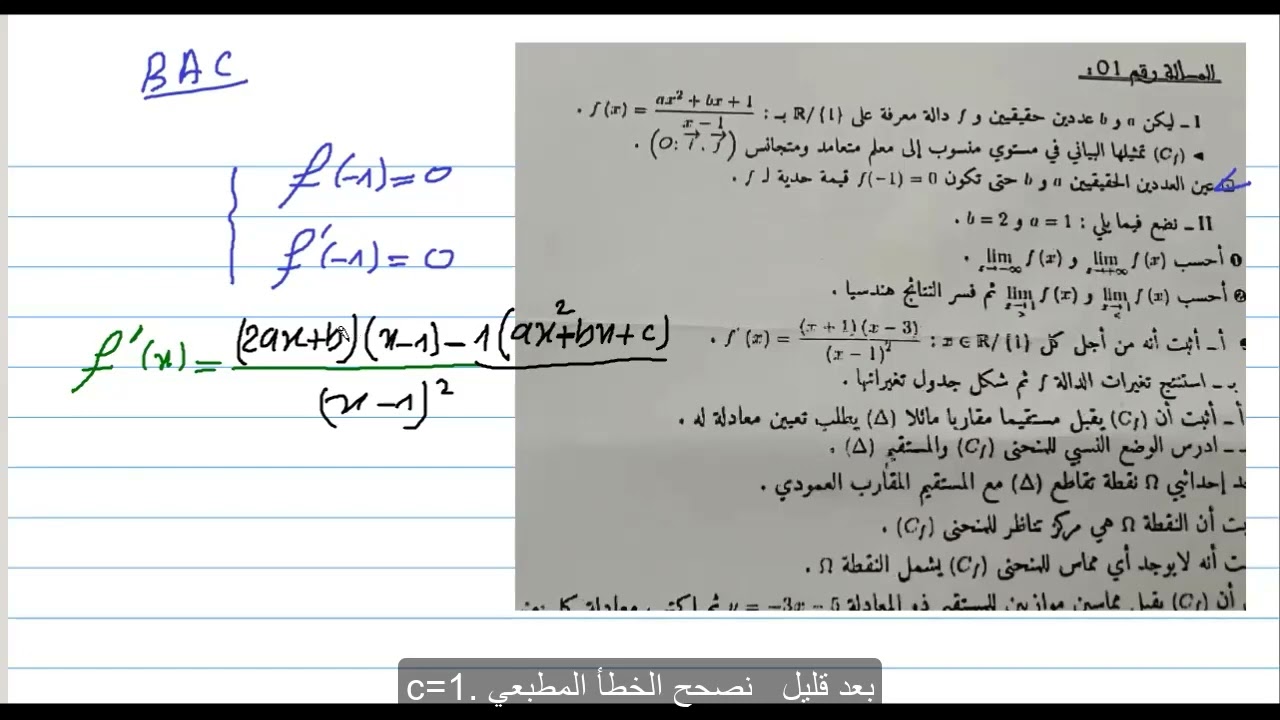 BAC
f(-1)=0
f'(-1)=0
f'(x)=(2ax+b)(x-1)-1(ax²+bx+c)
(x-1)²
المسألة رقم 01:
I ـ ليكن a و b عددين حقيقيين و f دالة معرفة على ℝ/{1} بـ : f(x) = (ax² + bx + 1)/(x − 1) .
◄ (C_f) تمثيلها البياني في مستوي منسوب إلى معلم متعامد ومتجانس (O; i, j) .
عين العددين الحقيقيين a و b حتى تكون f(−1) = 0 قيمة حدية لـ f .
II ـ نضع فيما يلي : a = 1 و b = 2 .
❶ أحسب lim x→+∞ f(x) و lim x→−∞ f(x) .
❷ أحسب lim x→1 < f(x) و lim x→1 > f(x) ثم فسر النتائج هندسيا .
أ ـ أثبت أنه من أجل كل x ∈ ℝ/{1} : f'(x) = (x + 1)(x − 3)/(x − 1)² .
بـ ـ استنتج تغيرات الدالة f ثم شكل جدول تغيراتها .
أ ـ أثبت أن (C_f) يقبل مستقيما مقاربا مائلا (Δ) يطلب تعيين معادلة له .
ـ ادرس الوضع النسبي للمنحنى (C_f) والمستقيم (Δ) .
إحداثيي Ω نقطة تقاطع (Δ) مع المستقيم المقارب العمودي .
أن النقطة Ω هي مركز تناظر للمنحنى (C_f) .
أنه لا يوجد أي مماس للمنحنى (C_f) يشمل النقطة Ω .
أن (C_f) يقبل مماسين موازيين للمستقيم ذو المعادلة y = −3x − 5 ثم اكتب معادلة كل
بعد قليل نصحح الخطأ المطبعي .c=1